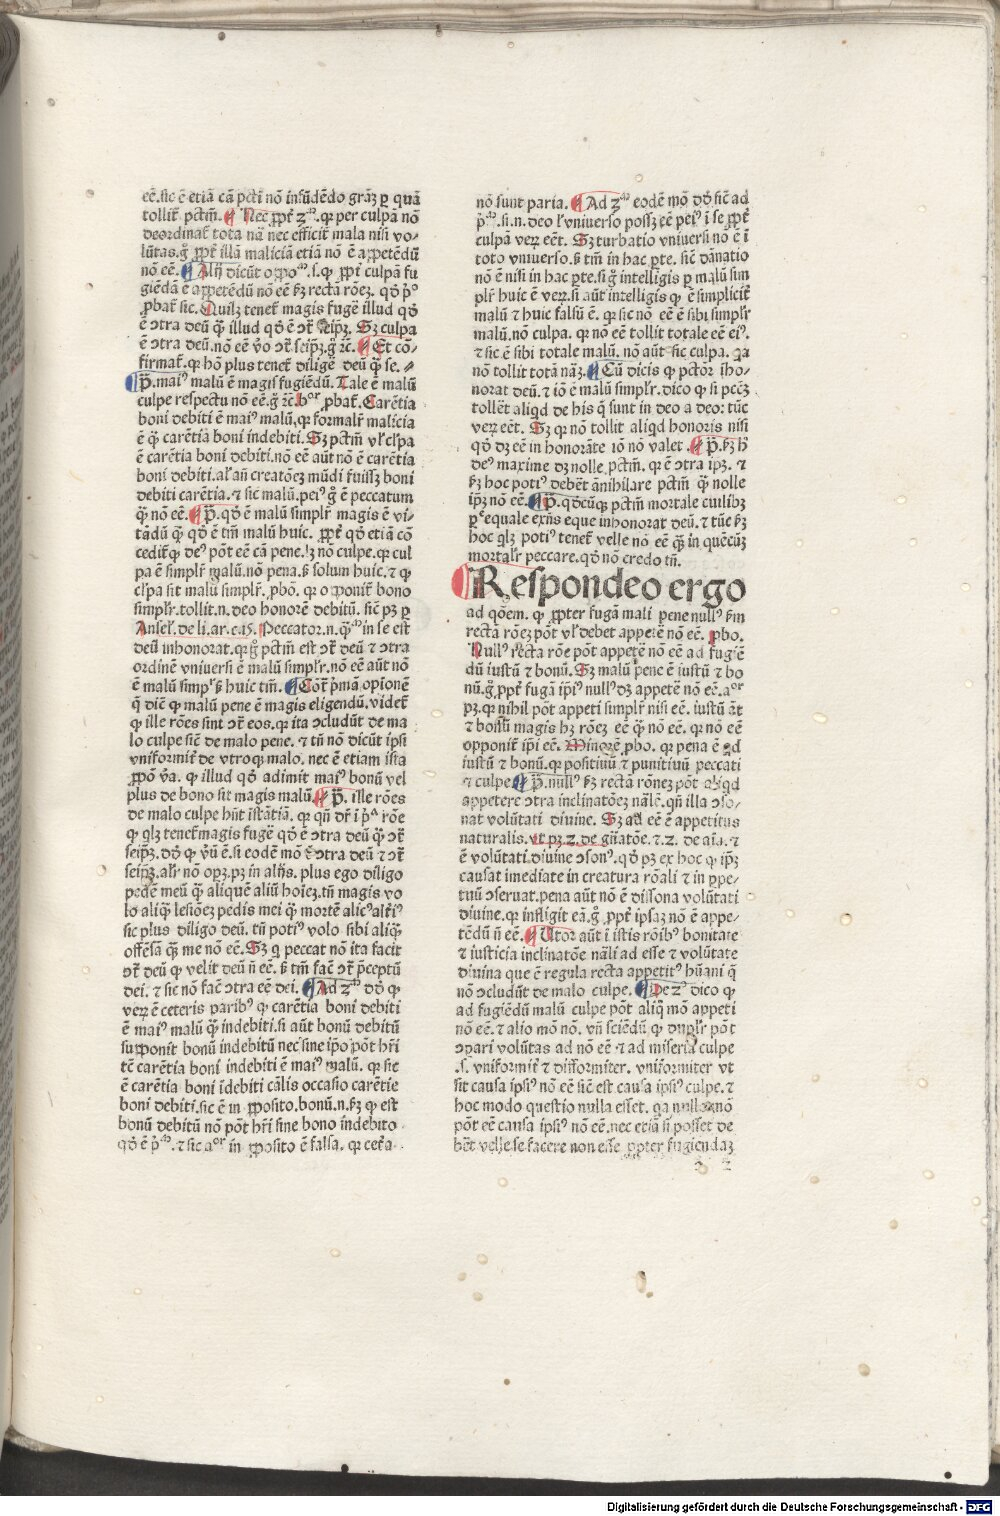 eē.sic ē etiā cā pctī nō infūdēdo grāꝫ ꝑ quā
tollit̄ pctm̄. ¶ Nec ꝓpt̄ 2ᵐ.qꝛ per culpā nō
deordinat̄ tota nā nec efficit̄ mala nisi vo⸗
lūtas.g̊ ꝓpt̄ illā maliciā etiā nō ē appetēdū
nō eē. ¶ Alij dicūt oppoᵐ.s.ꝙ ꝓpt̄ culpā fu
giēdā ē appetēdū nō eē ẜꝫ rectā rōeꝫ. qđ pº
ꝓbat̄ sic. Quilꝫ tenet̄ magis fugē illud qđ
ē ↄtra deū q̄ illud qđ ē ↄt̄ seip̄ꝫ. Sꝫ culpa
ē ↄtra deū.nō eē ṽo ↄt̄ seip̄ꝫ.g̊ ⁊c̄. ¶ Et cō⸗
firmat̄.qꝛ hō plus tenet̄ diligē deū q̄ se.⸗
¶ P̄.maiꝰ malū ē magis fugiēdū. Tale ē malū
culpe respectu nō eē.g̊ ⁊c̄. bᵒʳ ꝓbat̄. Carētia
boni debiti ē maiꝰ malū.qꝛ formalr̄ malicia
ē q̄ carētia boni indebiti. Sꝫ pctm̄ vl̄ cl̄pa
ē carētia boni debiti.nō eē aūt nō ē carētia
boni debiti.al̄ an̄ creatōeꝫ mūdi fuissꝫ boni
debiti carētia.⁊ sic malū.peiꝰ g̊ ē peccatum
q̄ nō eē. ¶ P̄.qđ ē malū simplr̄ magis ē vi⸗
tādū q̄ qđ ē tm̄ malū huic. ꝓpt̄ qđ etiā cō
cedit̄ ꝙ deꝰ pōt eē cā pene.lꝫ nō culpe.qꝛ cul
pa ē simplr̄ malū.nō pena.ẜ solum huic.⁊ ꝙ
cl̄pa sit malū simplr̄.ꝓbō. qꝛ opponit̄ bono
simplr̄.tollit.n.deo honorē debitū. sic̄ pꝫ ꝑ
Ansel̄.de li.ar.c.15. Peccator.n.q̄ᵐ in se est
deū inhonorat.qꝛ g̊ pctm̄ est ↄt̄ deū ⁊ ↄtra
ordinē vniuersi ē malū simplr̄.nō eē aūt nō
ē malū simpl̄r ẜ huic tm̄. ¶ Cōt̄ pⁱmā opionē
q̄ dic̄ ꝙ malū pene ē magis eligendū.videt̄
ꝙ ille rōes sint ↄt̄ eos.qꝛ ita ↄcludūt de ma
lo culpe sic̄ de malo pene. ⁊ tn̄ nō dicūt ipsi
vniformit̄ de vtroqꝫ malo. nec ē etiam ista
ꝓpō ṽa. ꝙ illud qđ adimit maiꝰ bonū vel
plus de bono sit magis malū. ¶ P̄. ille rōes
de malo culpe hn̄t īstātiā. qꝛ qn̄ dr̄ ī pª rōe
ꝙ qlꝫ tenet̄ magis fugē qđ ē ↄtra deū q̄ ↄt̄
seip̄ꝫ.đđ ꝙ ṽū ē.si eodē mō ē ↄtra deū ⁊ ↄt̄
seip̄ꝫ.al̄r nō opꝫ.pꝫ in alijs. plus ego diligo
pedē meū q̄ aliquē aliū hoīeꝫ.tn̄ magis vo
lo aliq̄ lesiōeꝫ pedis mei q̄ mortē alicꝰ alt̄iꝰ
sic plus diligo deū. tn̄ potiꝰ volo sibi aliq̄
offēsā q̄ꝫ me nō eē. Sꝫ q peccat nō ita facit
ↄt̄ deū ꝙ velit deū n̄ eē. ẜ tm̄ fac̄ ↄt̄ p̄ceptū
dei. ⁊ sic nō fac̄ ↄtra eē dei. ¶ Ad 2ᵐ đđ ꝙ
veꝝ ē ceteris paribꝰ ꝙ carētia boni debiti
ē maiꝰ malū q̄ indebiti.si aūt bonū debitū
supponit bonū indebitū nec sine ip̄o pōt hr̄i
tc̄ carētia boni indebiti ē maiꝰ malū. qꝛ sic
ē carētia boni īdebiti cālis occasio carētie
boni debiti.sic ē in ꝓposito.bonū.n.ẜꝫ ꝙ est
bonū debitū nō pōt hr̄i sine bono indebito
qđ ē pᵐ.⁊ sic aᵒʳ in ꝓposito ē falsa. qꝛ cet̄a
nō sunt paria. ¶ Ad 2ᵐ eodē mō đđ sic̄ ad
pᵐ.si.n.deo l̄ vniuerso possꝫ eē peiꝰ ī se ꝓpt̄
culpā veꝝ eēt. Sꝫ turbatio vniuersi nō ē ī
toto vniuerso.ẜ tm̄ in hac ꝑte. sic̄ dānatio
nō ē nisi in hac ꝑte.si g̊ intelligis ꝑ malū sim
plr̄ huic ē veꝝ.si aūt intelligis ꝙ ē simplicit̄
malū ⁊ huic falsū ē. qꝛ sic nō eē ē sibi simplr̄
malū.nō culpa. qꝛ nō eē tollit totale eē eiꝰ.
⁊ sic ē sibi totale malū.nō aūt sic culpa. qa
nō tollit totā nāꝫ. ¶ Cū dicis ꝙ pctōr iho⸗
norat deū.⁊ iō ē malū simplr̄.dico ꝙ si pcc̄ꝫ
tollēt aliqd de his q̄ sunt in deo a deo: tūc
veꝝ eēt. Sꝫ qꝛ nō tollit aliqd honoris nisi
qđ dꝫ eē in honorāte iō nō valet. ¶ P̄.ẜꝫ h̄
deꝰ maxime dꝫ nolle pctm̄. qꝛ ē ↄtra ip̄ꝫ. ⁊
ẜꝫ hoc potiꝰ debēt ānihilare pctm̄ q̄ nolle
ip̄ꝫ nō eē. ¶ P̄.qđcūqꝫ pctm̄ mortale cuilibꝫ
pᵉ equale exn̄s eque inhonorat deū.⁊ tūc ẜꝫ
hoc qlꝫ potiꝰ tenet̄ velle nō eē q̄ꝫ in quēcūqꝫ
mortalr̄ peccare.qđ nō credo tn̄.
¶ Respondeo ergo
ad qōem. ꝙ ꝓpter fugā mali pene nullꝰ ẜm
rectā rōeꝫ pōt vl̄ debet appetē nō eē. Pbo.
Nullꝰ recta rōe pōt appetē nō eē ad fugiē
dū iustū ⁊ bonū. Sꝫ malū pene ē iustū ⁊ bo
nū.g̊ ꝓpt̄ fugā ip̄iꝰ nullꝰ dꝫ appetē nō eē.aᵒʳ
pꝫ.qꝛ nihil pōt appeti simplr̄ nisi eē. iustū aūt
⁊ bonū magis hꝫ rōeꝫ eē q̄ nō eē. qꝛ nō eē
opponit̄ ip̄i eē. Minorē ꝓbo. qꝛ pena ē ad
iustū ⁊ bonū.qꝛ positiuū ⁊ punitiuū peccati
⁊ culpe. ¶ P̄.nullꝰ ẜꝫ rectā rōneꝫ pōt aliqd
appetere ↄtra inclinatōeꝫ nāle.qn̄ illa ↄso⸗
nat volūtati diuine. Sꝫ ad eē ē appetitus
naturalis.vt pꝫ 2. de gn̄atōe.⁊.2. de aīa. ⁊
ē volūtati diuine ↄsonꝰ.qđ pꝫ ex hoc ꝙ ip̄ꝫ
causat īmediate in creatura rōali ⁊ in ꝑpe⸗
tuū ↄseruat.pena aūt nō ē dissona volūtati
diuine.qꝛ infligit eā.g̊ ꝓpt̄ ipsaꝫ nō ē appe⸗
tēdū n̄ eē. ¶ Utor aūt ī istis rōibꝰ bonitate
⁊ iusticia inclinatōe nāli ad esse ⁊ volūtate
diuina que ē regula recta appetitꝰ hūani q̄
nō ↄcludūt de malo culpe. ¶ De 2º dico ꝙ
ad fugiēdū malū culpe pōt aliq̄ mō appeti
nō eē.⁊ alio mō nō. vn̄ sciēdū ꝙ duplr̄ pōt
ↄpari volūtas ad nō eē ⁊ ad miseriā culpe
.s. vniformit̄ ⁊ difformiter. vniformiter vt
sit causa ipsiꝰ nō eē sic̄ est causa ipsiꝰ culpe.⁊
hoc modo questio nulla esset. qa nullaꝫ nō
pōt eē causa ipsiꝰ nō eē.nec etiā si posset de
bēt velle.se facere non esse ꝓpter fugiendaꝫ
Digitalisierung gefördert durch die Deutsche Forschungsgemeinschaft - DFG